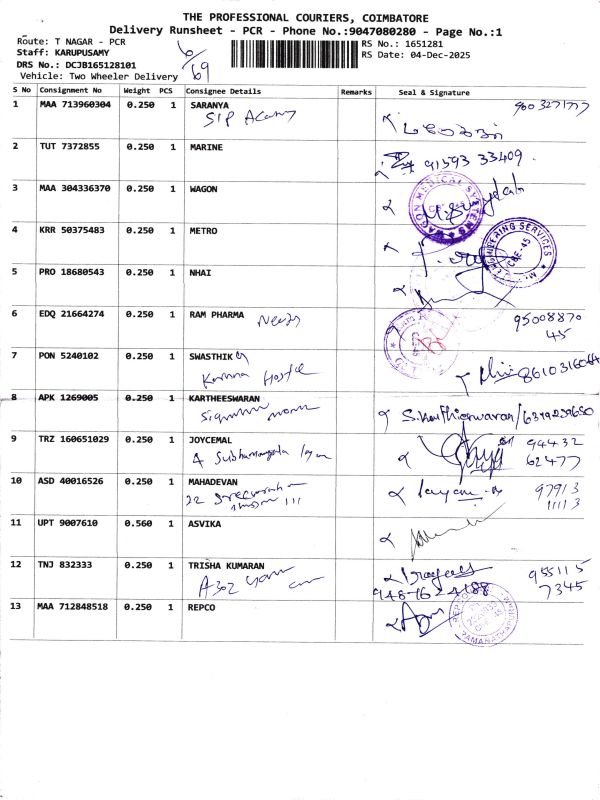 THE PROFESSIONAL COURIERS, COIMBATORE
Delivery Runsheet - PCR - Phone No.:9047080280 - Page No.:1
Route: T NAGAR - PCR
Staff: KARUPUSAMY
DRS No.: DCJB165128101
Vehicle: Two Wheeler Delivery
6/69
RS No.: 1651281
RS Date: 04-Dec-2025
S No Consignment No Weight PCS Consignee Details Remarks Seal & Signature
1 MAA 713960304 0.250 1 SARANYA
SIP
2 TUT 7372855 0.250 1 MARINE
91593 33409
3 MAA 304336370 0.250 1 WAGON
WAGON MEDICAL SYSTEMS
4 KRR 50375483 0.250 1 METRO
ENGINEERING SERVICES
CBE-45
5 PRO 18680543 0.250 1 NHAI
6 EDQ 21664274 0.250 1 RAM PHARMA
95008870
45
7 PON 5240102 0.250 1 SWASTHIK
8 APK 1269005 0.250 1 KARTHEESWARAN
9 TRZ 160651029 0.250 1 JOYCEMAL
94432
62477
10 ASD 40016526 0.250 1 MAHADEVAN
97913
11113
11 UPT 9007610 0.560 1 ASVIKA
12 TNJ 832333 0.250 1 TRISHA KUMARAN
A302
955115
7345
13 MAA 712848518 0.250 1 REPCO